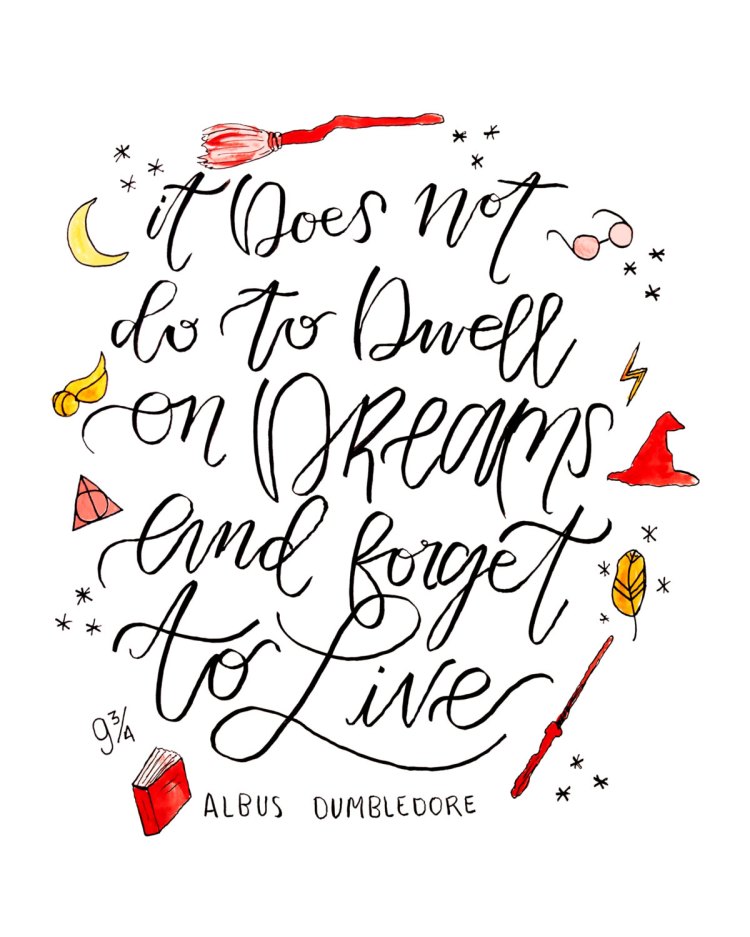 it Does not
do to Dwell
on DREAMS
and forget
to Live
9 3/4
ALBUS DUMBLEDORE